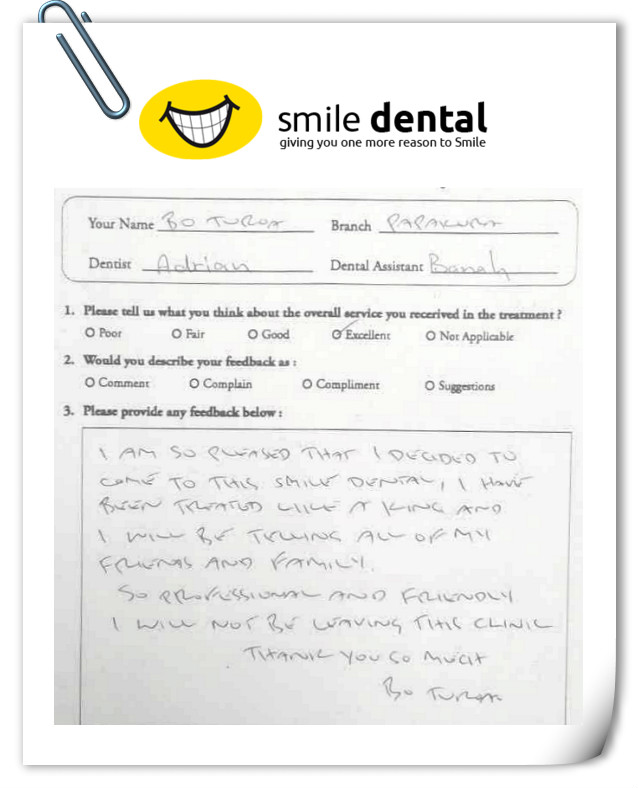 smile dental
giving you one more reason to Smile
Your Name BO TUROA Branch PAPAKURA
Dentist Adrian Dental Assistant Banah
1. Please tell us what you think about the overall service you recerived in the treatment ?
O Poor O Fair O Good O Excellent O Not Applicable
2. Would you describe your feedback as :
O Comment O Complain O Compliment O Suggestions
3. Please provide any feedback below :
I AM SO PLEASED THAT I DECIDED TO
COME TO THIS SMILE DENTAL, I HAVE
BEEN TREATED LIKE A KING AND
I WILL BE TELLING ALL OF MY
FRIENDS AND FAMILY.
SO PROFESSIONAL AND FRIENDLY
I WILL NOT BE LEAVING THIS CLINIC
THANK YOU SO MUCH
BO TUROA